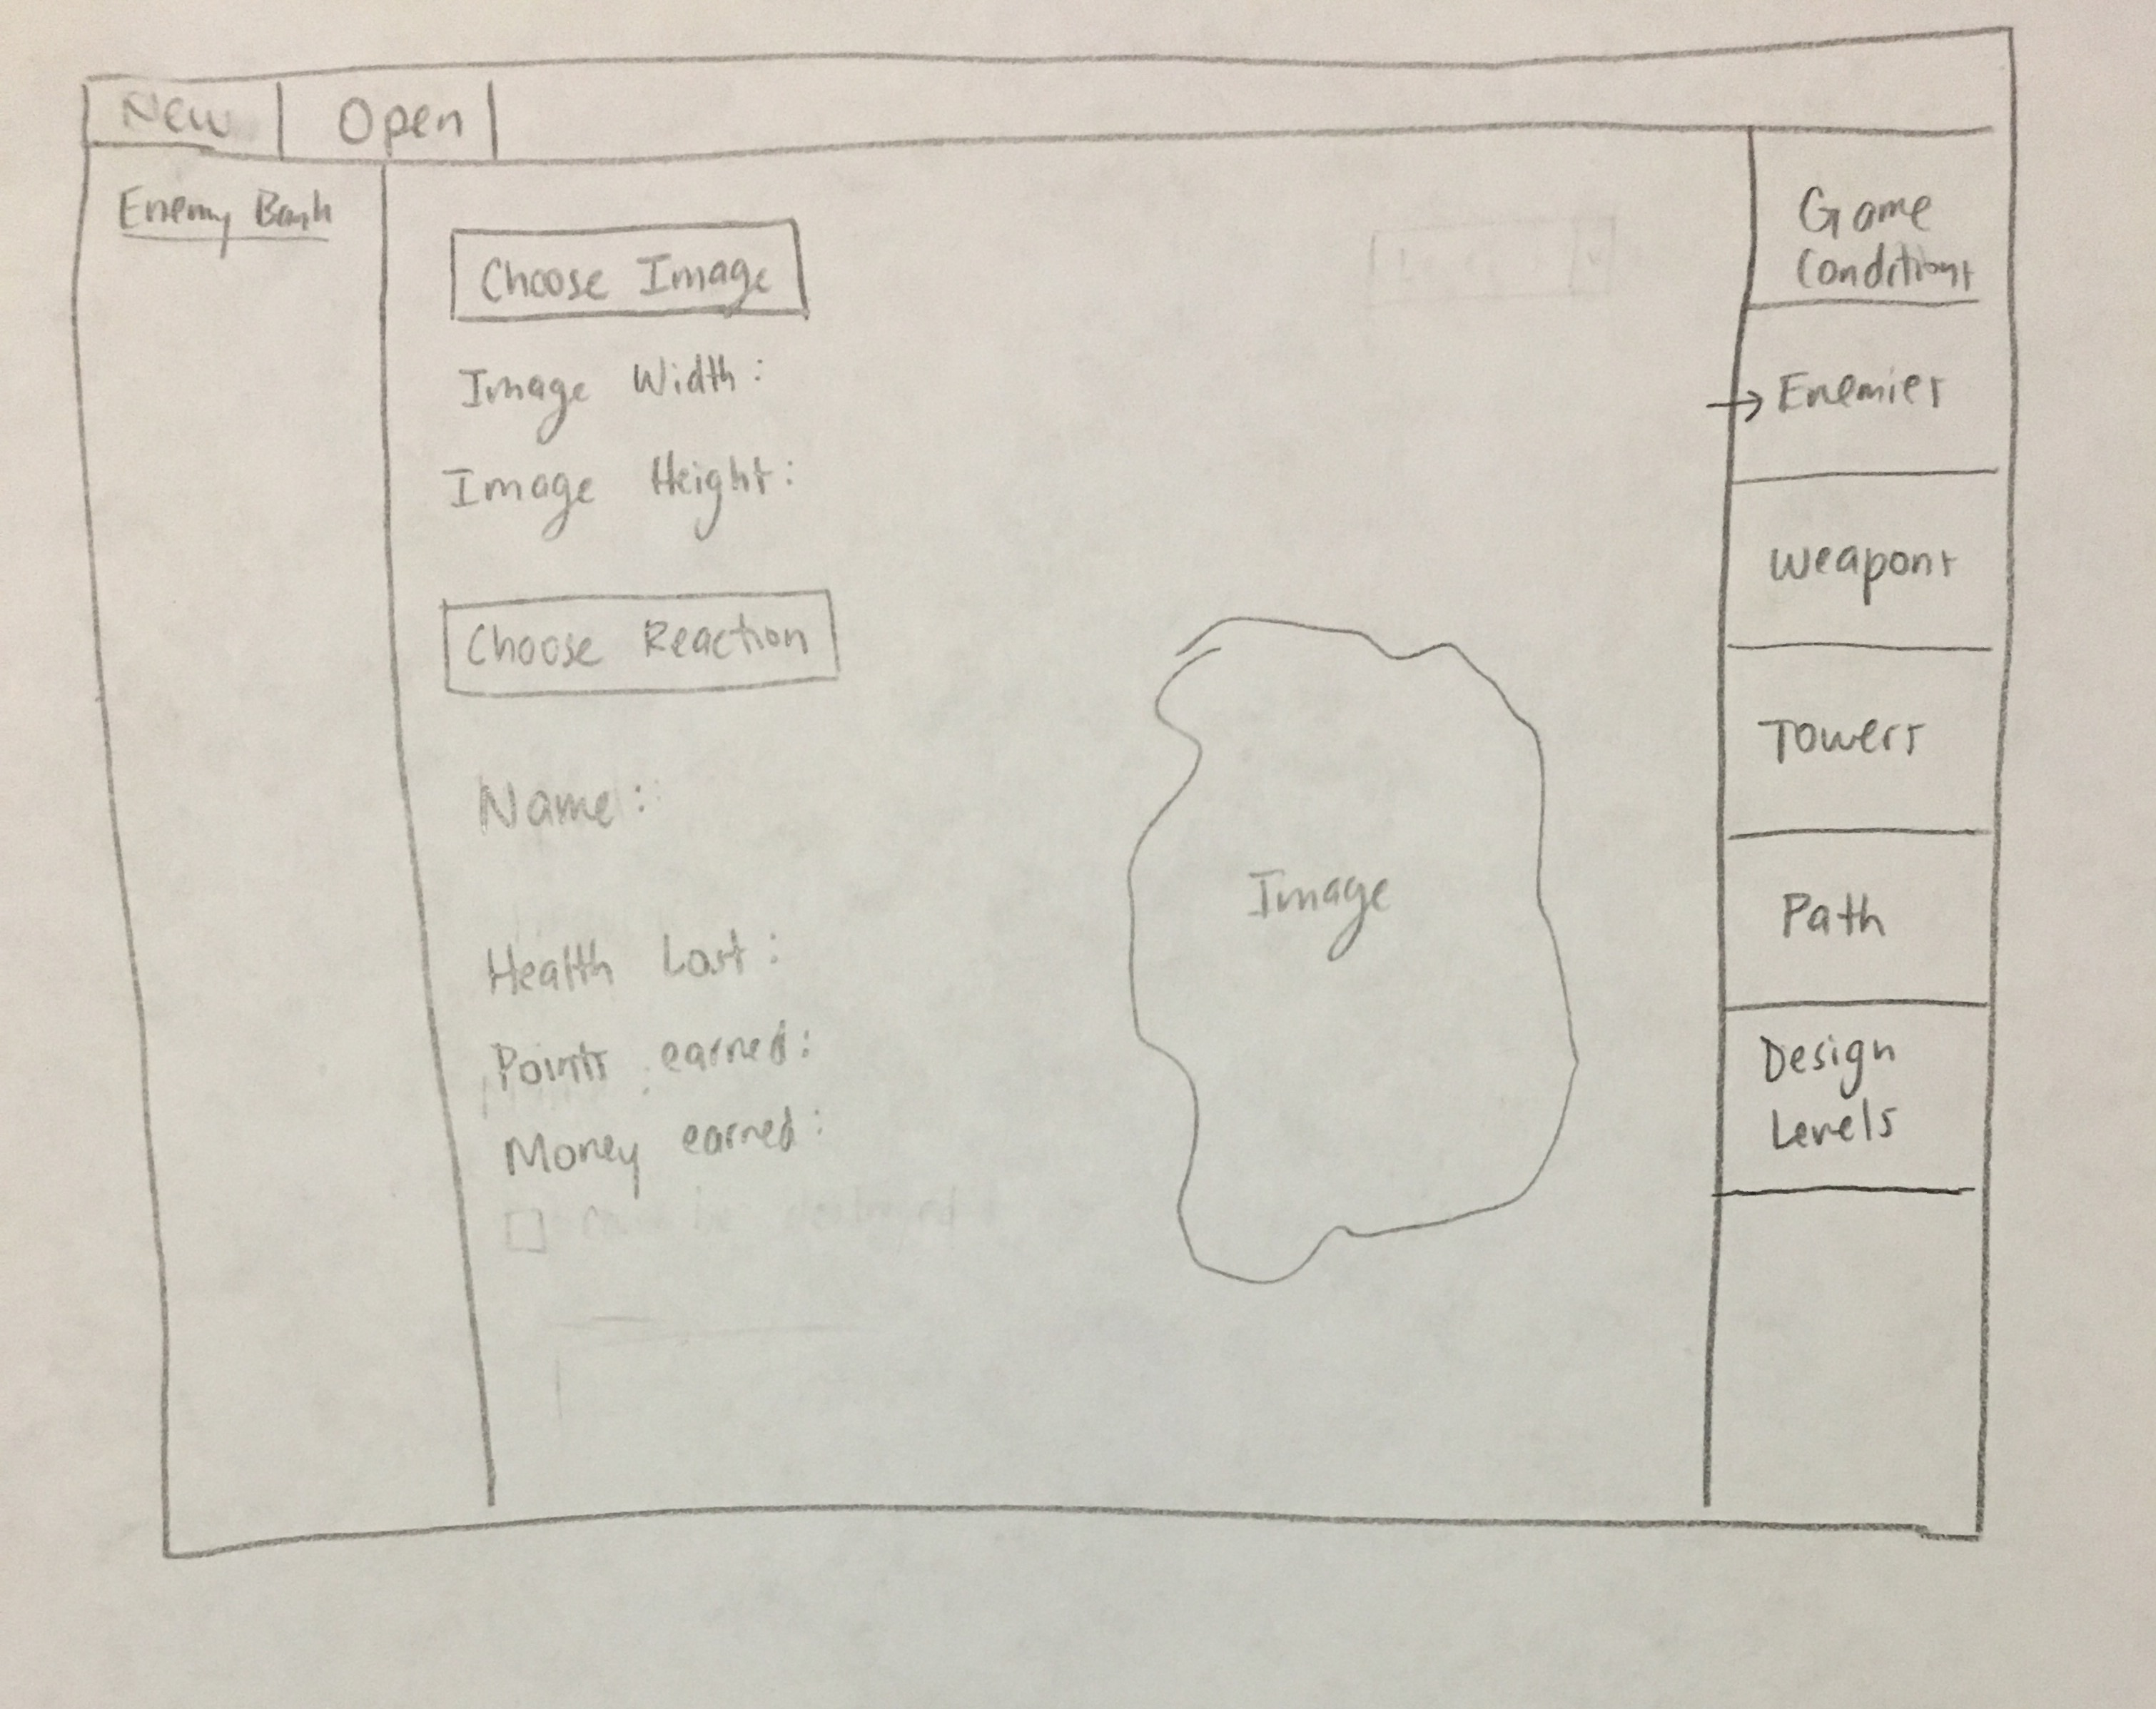 New
Open
Enemy Bank
Choose Image
Image Width:
Image Height:
Choose Reaction
Name:
Health Lost:
Points earned:
Money earned:
Image
Game
Conditions
Enemies
Weapons
Towers
Path
Design
Levels